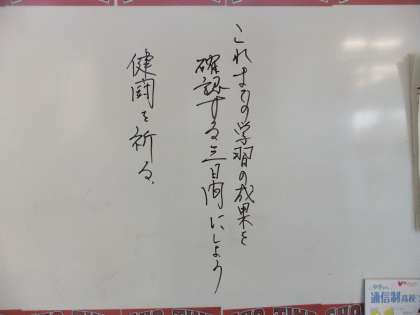 これまでの学習の成果を
確認する三日間にしよう
健闘を祈る。
通信制高校